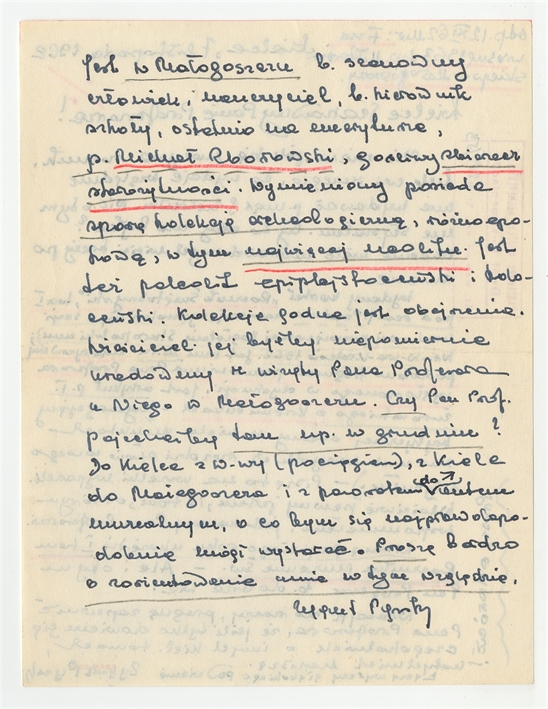 Jest w Małogoszczu b. szanowny
człowiek, nauczyciel, b. kierownik
szkoły, ostatnio na emeryturze,
p. Michał Rborowski, gorliwy zbieracz
starożytności. Wymieniony posiada
sporą kolekcję archeologiczną, różnoepo-
kową, w tym najwięcej neolitu. Jest
też paleolit epiplejstoceński i holo-
ceński. Kolekcja godna jest obejrzenia.
Właściciel jej byłby niezmiernie
uradowany z wizyty Pana Profesora
u Niego w Małogoszczu. Czy Pan Prof.
pojechałby tam np. w grudniu?
Do Kielc z W-wy (pociągiem), z Kielc
do Małogoszcza i z powrotem do ↗ autem
muzealnym, o co bym się najprawdopo-
dobniej mógł wystarać. Proszę bardzo
o zorientowanie mnie w tym względzie.
Zygmunt Pyzik